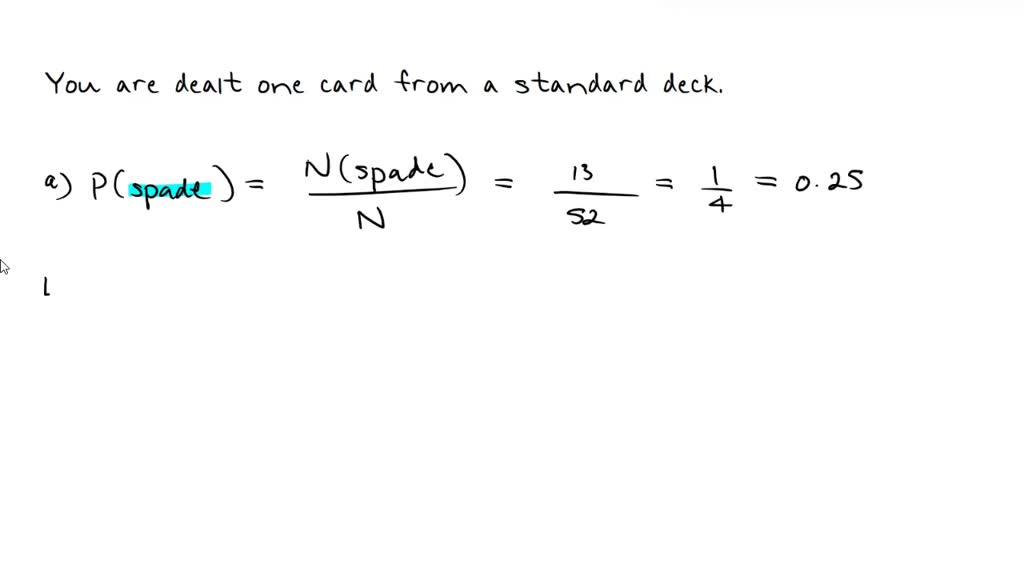 You are dealt one card from a standard deck.
a) P(spade) = N(spade)/N = 13/52 = 1/4 = 0.25